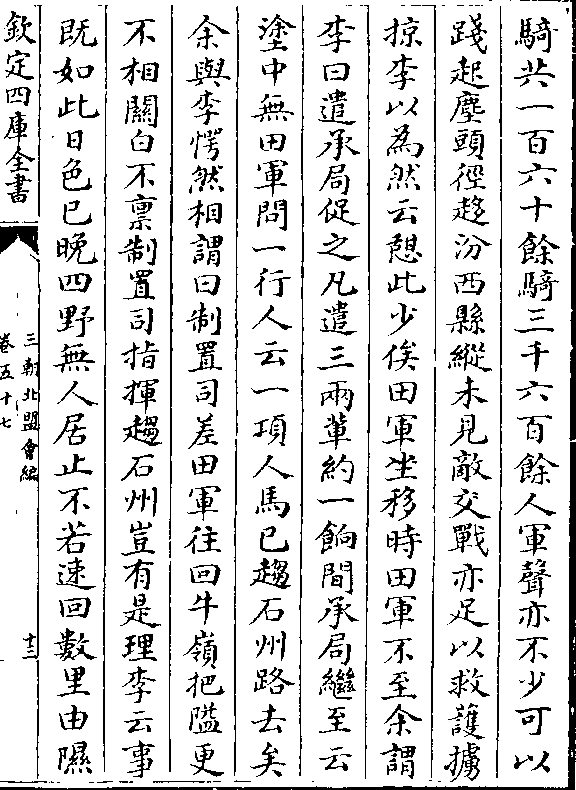 騎共一百六十餘騎三千六百餘人軍聲亦不少可以
踐起塵頭徑趍汾西縣縱未見敵交戰亦足以救護擄
掠李以為然云憇此少俟田軍坐移時田軍不至余謂
李曰遣承局促之凡遣三兩輩約一餉間承局繼至云
塗中無田軍問一行人云一項人馬已趨石州路去矣
余與李愕然相謂曰制置司差田軍往回牛嶺把隘更
不相關白不禀制置司指揮趨石州豈有是理李云事
既如此日色已晚四野無人居止不若速回數里由隰
欽定四庫全書
三朝北盟會編
卷五十七
十三